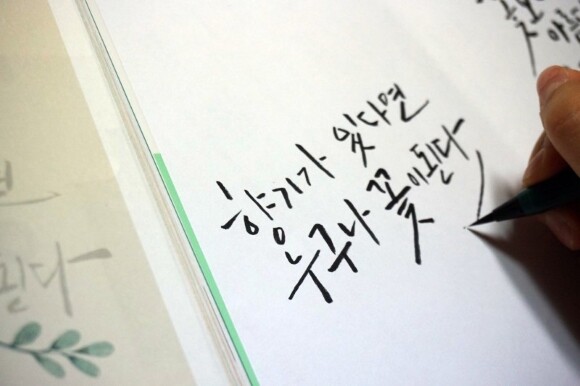 향기가 있다면
누구나 꽃이된다